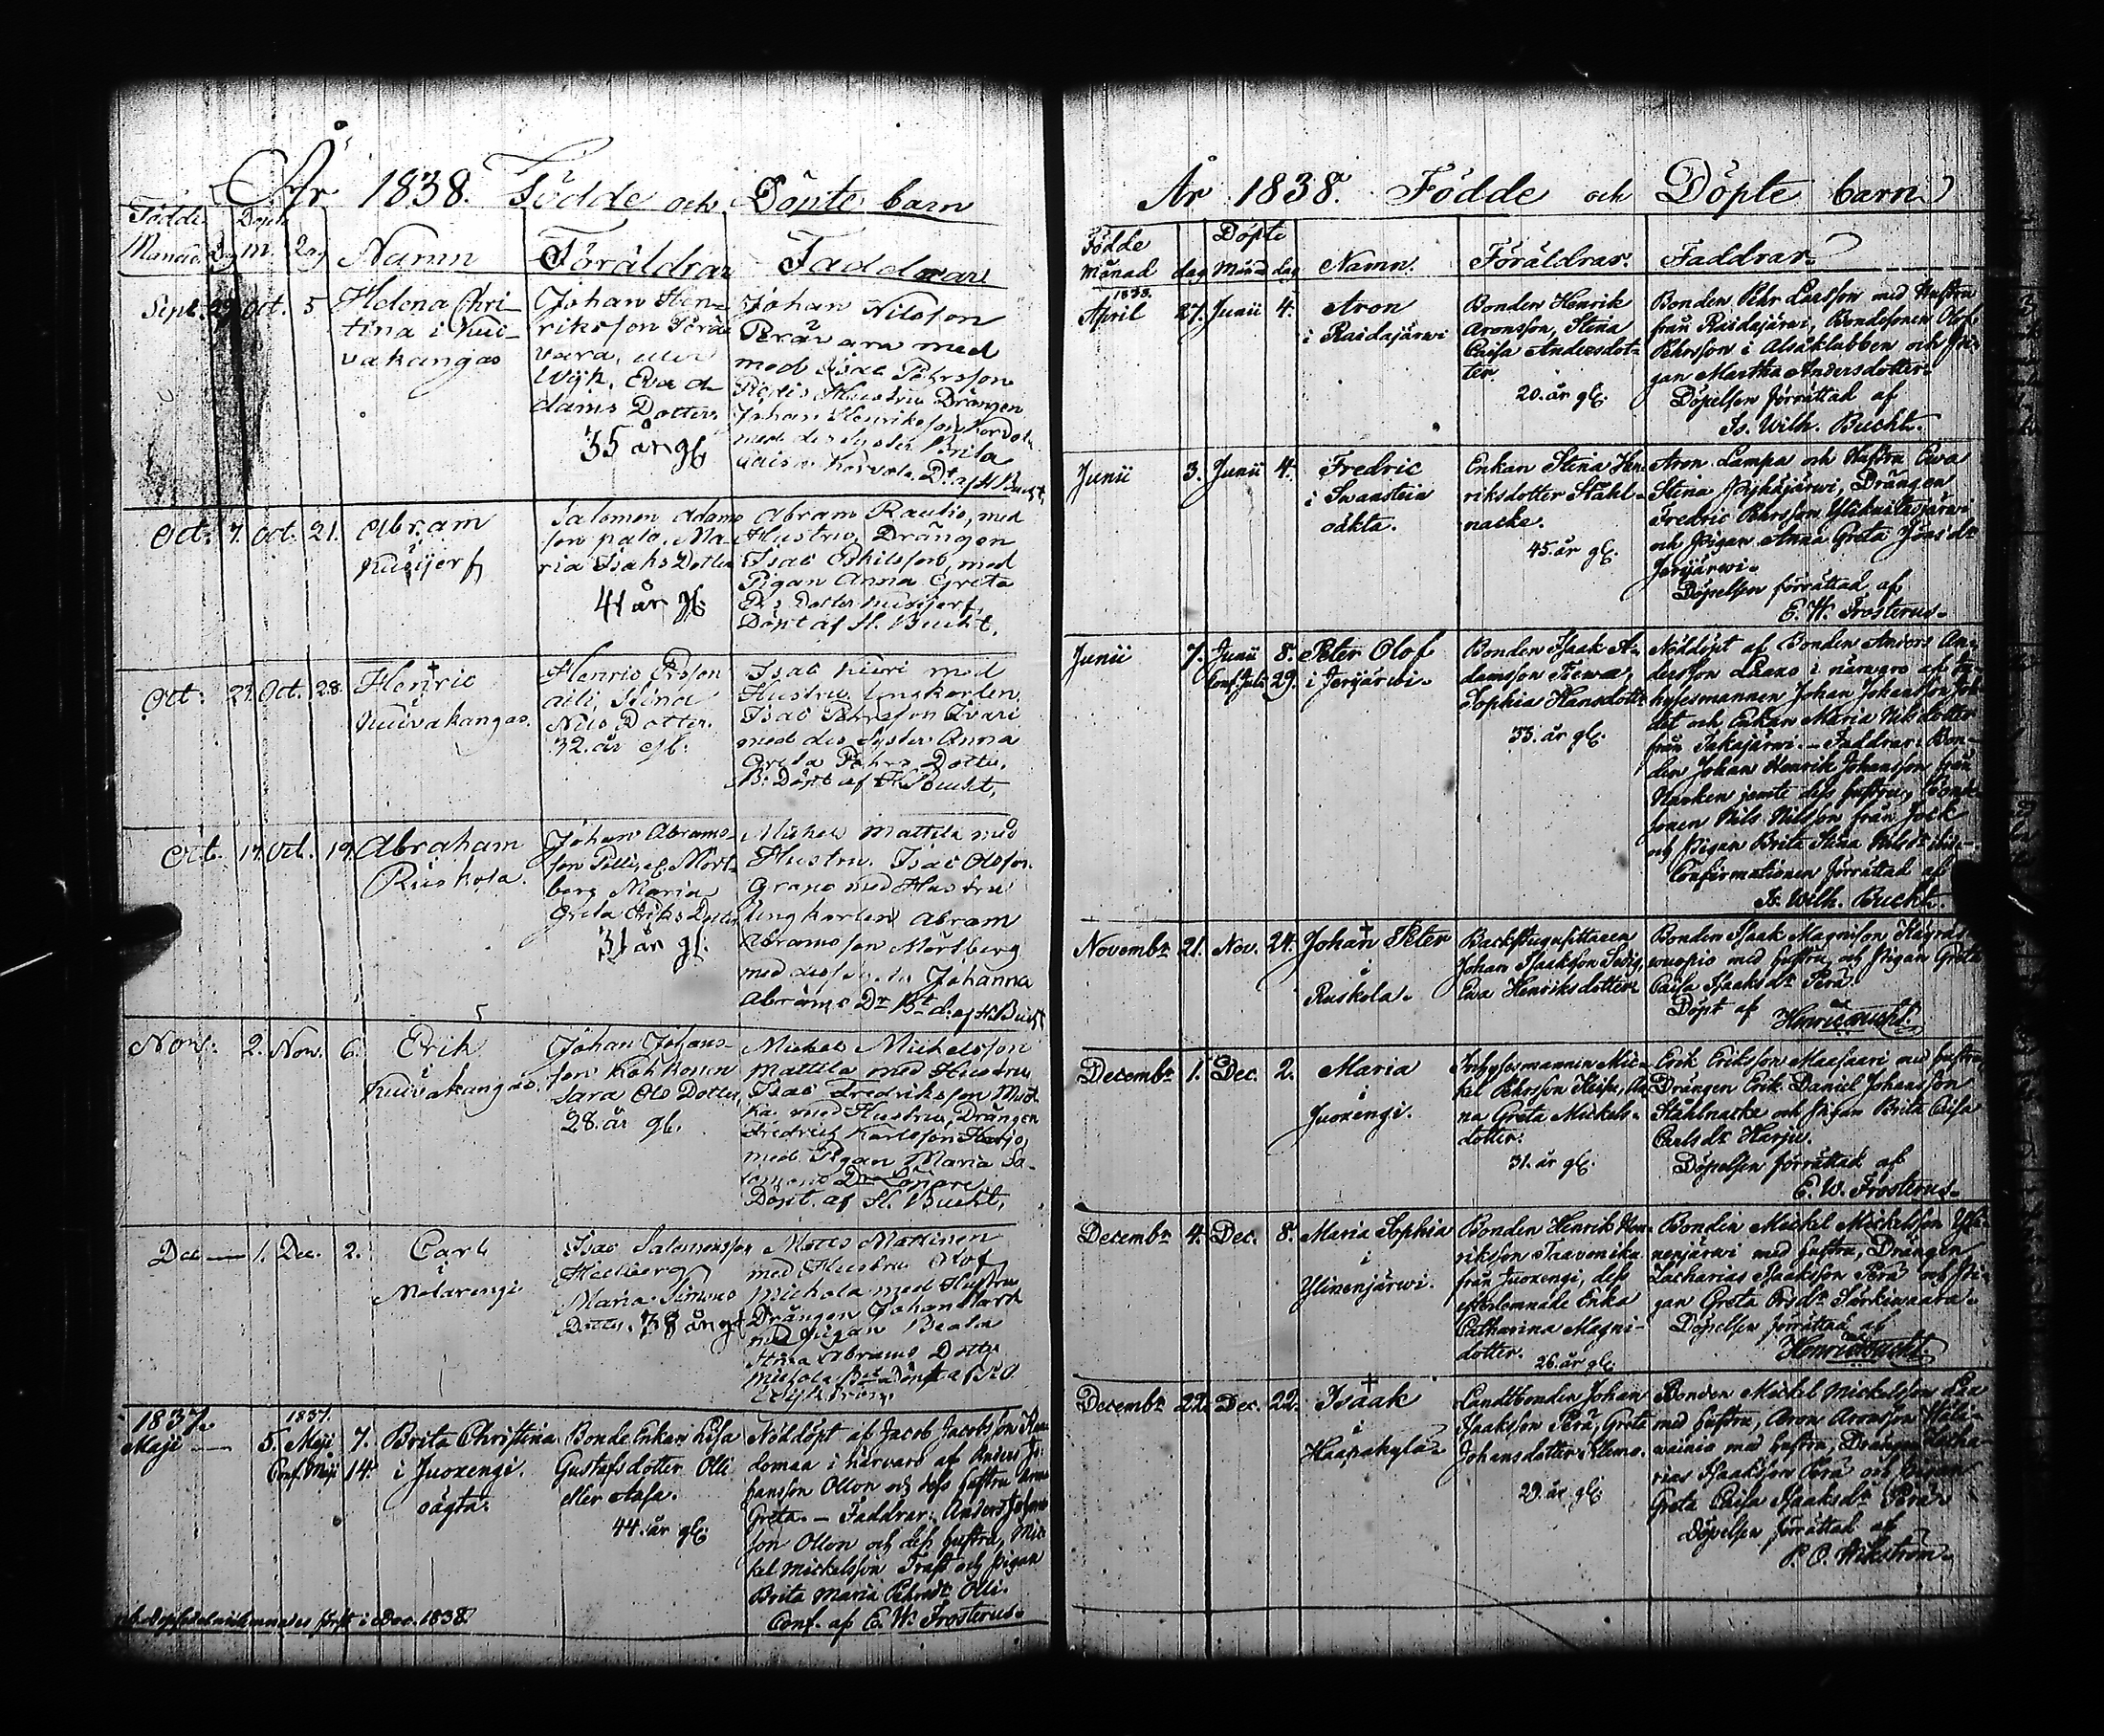 År 1838. Födde och Döpte barn
Födde Döpte
Månad Dag m. Dag Namn Föräldrar Faddrar
Sept. 29 Oct. 5 Helena Chri-
tina i Kui-
vakangas
Johan Hen-
riksson Perä
vara, eller
Wyk, Eva A-
dams Dotter
35 år gl.
Johan Nilsson
Perävara med
med Isac Pehrsson
Hustru Drängen
Johan Henriksson
med des Syster Brita
Caisa Dt. af H. Bucht,
Oct. 7. Oct. 21. Abram
i
Kuijerf
Salomon Adams
son palo, Ma-
ria Isaks Dotter
41 år gl.
Abram Rautio, med
Hustru, Drängen
Isac Eskilsson, med
Pigan Anna Greta
Dotter
Döpt af H. Bucht.
Oct. 27. Oct. 28. Henric
i
Kuivakangas.
Henric Ersson
aili, Stina
Nils Dotter.
32. år gl.
Isac Kuiri med
Hustru, Ungkarlen,
Isac Pehrsson
med des Syster Anna
Greta Pehrs Dotter,
Döpt af H. Bucht,
Oct. 17. Oct. 19. Abraham
Ruskola.
Johan Abrams-
son Pelli, el. Mört-
berg Maria
Greta Eriks Dotter
31 år gl.
Mickel Mattila med
Hustru. Isac Olsson
Grape med Hustru
Ungkarlen Abram
Abramsson Mörtberg
med Johanna
Abrams Dr. af H. Bucht
Nov. 2. Nov. 6. Erik
i
Kuivakangas.
Johan Johans-
son Kohkonen
Sara Ols Dotter,
28. år gl.
Mickel Mickelsson
Mattila med Hustru
Isac Fredriksson
med Hustru, Drängen
Fredrik Karlsson Harjo,
med Pigan Maria Sa-
lomons Dr
Döpt af H. Bucht,
Dec 1. Dec. 2. Carl
i
Matarengi
Isac Salomonsson
Hedberg
Maria Simons
Dotter. 38 år gl.
Matts Mattinen
med Hustru Olof
Michola med Hustru
Drängen Johan
med Pigan Beata
Stina Abrams Dotter
Michola
1837. 1837.
Maji 5. Maji 7. Brita Christina
Conf. Maji 14. i Juoxengi.
oägta.
Bonde Enkan Lisa
Gustafsdotter Olli
eller
44. år gl.
Nöddöpt af Jacob Jacobsson
i närvaro af Anders Jo-
hansson Ollon och dess hustru Anna
Greta. – Faddrar: Anders Johans-
son Ollon och dess hustru, Mic-
kel Mickelsson Traft och pigan
Brita Maria Pehrsdr Olli.
Conf. af E. W. Frosterus.
först i Dec. 1838.
År 1838. Födde och Döpte barn
Födde Döpte
Månad dag Månad dag Namn. Föräldrar. Faddrar.
1838.
April 27. Junii 4. Aron
i Raidajärwi
Bonden Henrik
Aronsson, Stina
Caisa Andersdot-
ter.
20. år gl.
Bonden Pehr Larsson med Hustru
från Raidajärwi, Bondsonen Olof
Pehrsson i Alsåklubben och Pi-
gan Martha Andersdotter.
Döpelsen förrättad af
Is. Wilh. Bucht.
Junii 3. Junii 4. Fredric
i Swanstein
oäkta.
Enkan Stina Hen-
riksdotter Stähl-
nacke.
45. år gl.
Aron Lampa och Hustru Ewa
Stina Drängen
Fredric Pehrsson
och Pigan Anna Greta
Jerijärwi.
Döpelsen förrättad af
E. W. Frosterus.
Junii 7. Junii 8. Peter Olof
Conf. Julii 29. i Jerijärwi.
Bonden Isaak A-
damsson
Sophia Hansdottr
33. år gl.
Nöddöpt af Bonden Anders An-
dersson Laaxo i närvaro af In-
hysesmannen Johan Johansson
och Enkan Maria Nilsdotter
från – Faddrar: Bon-
den Johan Henrik Johansson från
Narken jemte dess hustru, Bond-
sonen Nils Nilsson från Jock
och Pigan Brita Stina
Confirmationen förrättad af
Is. Wilh. Bucht.
Novembr 21. Nov. 24. Johan Peter
i
Ruskola.
Backstugusittaren
Johan Isaksson Sedig,
Ewa Henriksdotter
Bonden Isaak Magnisson
med hustru, och Pigan Greta
Caisa Isaaksdr Perä.
Döpt af
Henric Bucht.
Decembr 1. Dec. 2. Maria
i
Juoxengi.
Inhysesmannen Mic-
kel Pehrsson An-
na Greta Mickels-
dotter.
31. år gl.
Erik Eriksson Maasaari med hustru,
Drängen Erik Daniel Johansson
Stählnacke och Pigan Brita Caisa
Carlsdr Harju.
Döpelsen förrättad af
E. W. Frosterus.
Decembr 4. Dec. 8. Maria Sophia
i
Ylinenjärwi.
Bonden Henrik Hen-
riksson Taavonika
från Juoxengi, dess
efterlemnade Enka
Catharina Magni-
dotter. 26. år gl.
Bonden Mickel Mickelsson Yli-
nenjärwi med hustru, Drängen
Zacharias Isaaksson Perä och Pi-
gan Greta Ersdr Särkiwaara.
Döpelsen förrättad af
Henric Bucht.
Decembr 22. Dec. 22. Isaak
i
Haapakylä
Landtbonden Johan
Isaaksson Perä, Greta
Johansdotter
29. år gl.
Bonden Mickel Mickelsson
med hustru, Aron Aronsson
med hustru, Drängen Zacha-
rias Isaaksson Perä och Pigan
Greta Caisa Isaaksdr Perä.
Döpelsen förrättad af
P. O. Wikström.